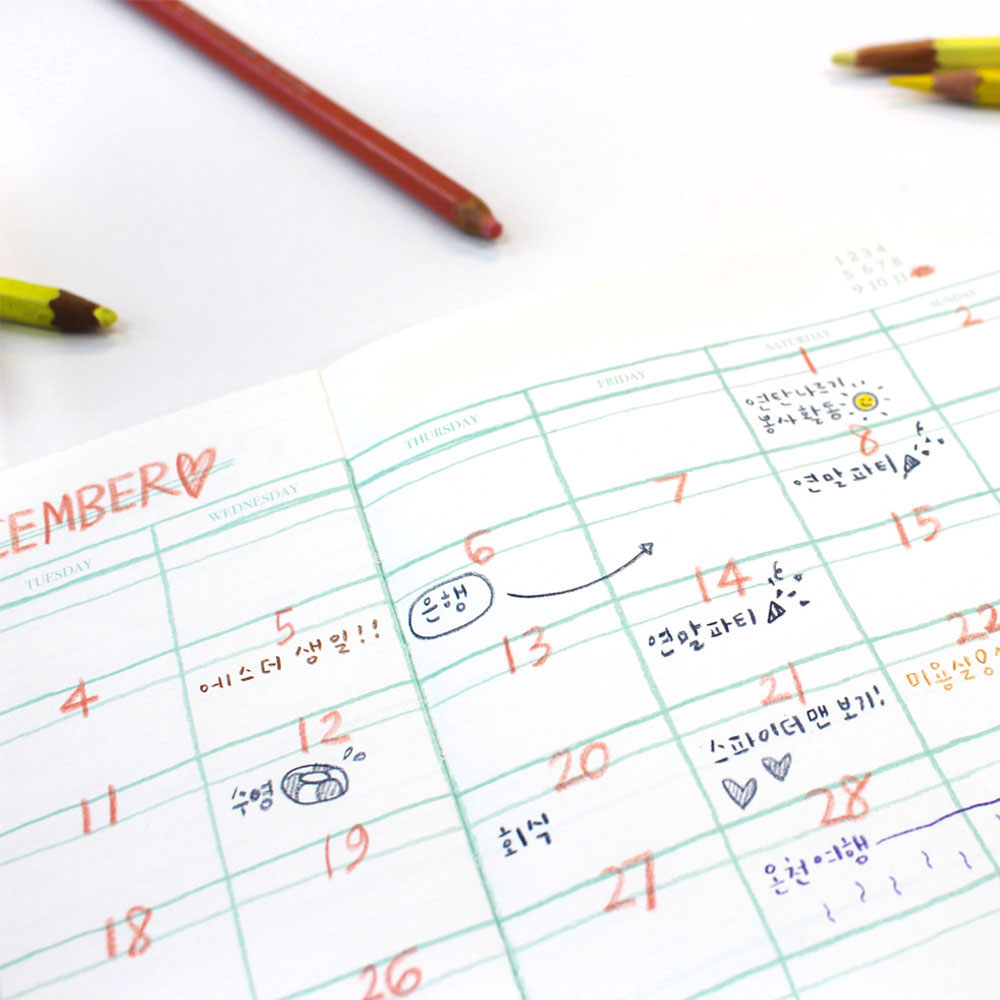 1 2 3 4
5 6 7 8
9 10 11
CEMBER
TUESDAY
WEDNESDAY
THURSDAY
FRIDAY
SATURDAY
SUNDAY
1
연탄나르기
봉사활동
2
4
5
에스더 생일!!
6
은행
7
8
연말파티
11
12
수영
13
14
연말파티
15
18
19
20
회식
21
스파이더맨 보기!
22
미용실
26
27
28
온천여행